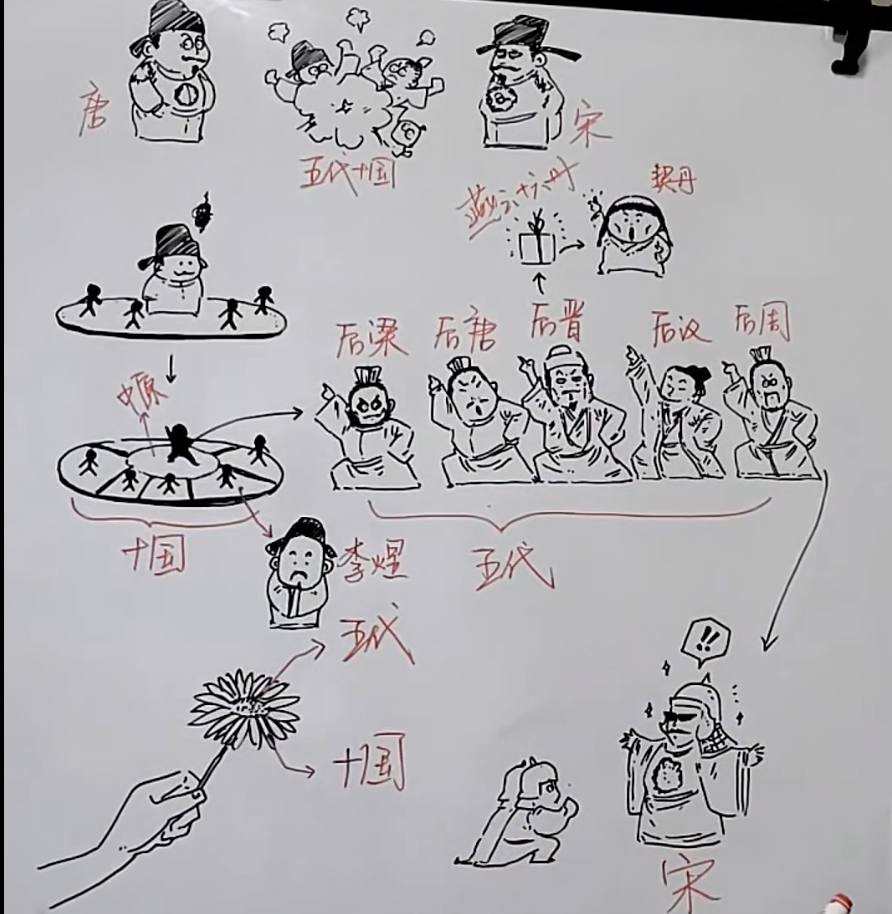 唐
五代十国
宋
燕云十六州
契丹
后梁
后唐
后晋
后汉
后周
中原
十国
李煜
五代
五代
十国
!!
宋